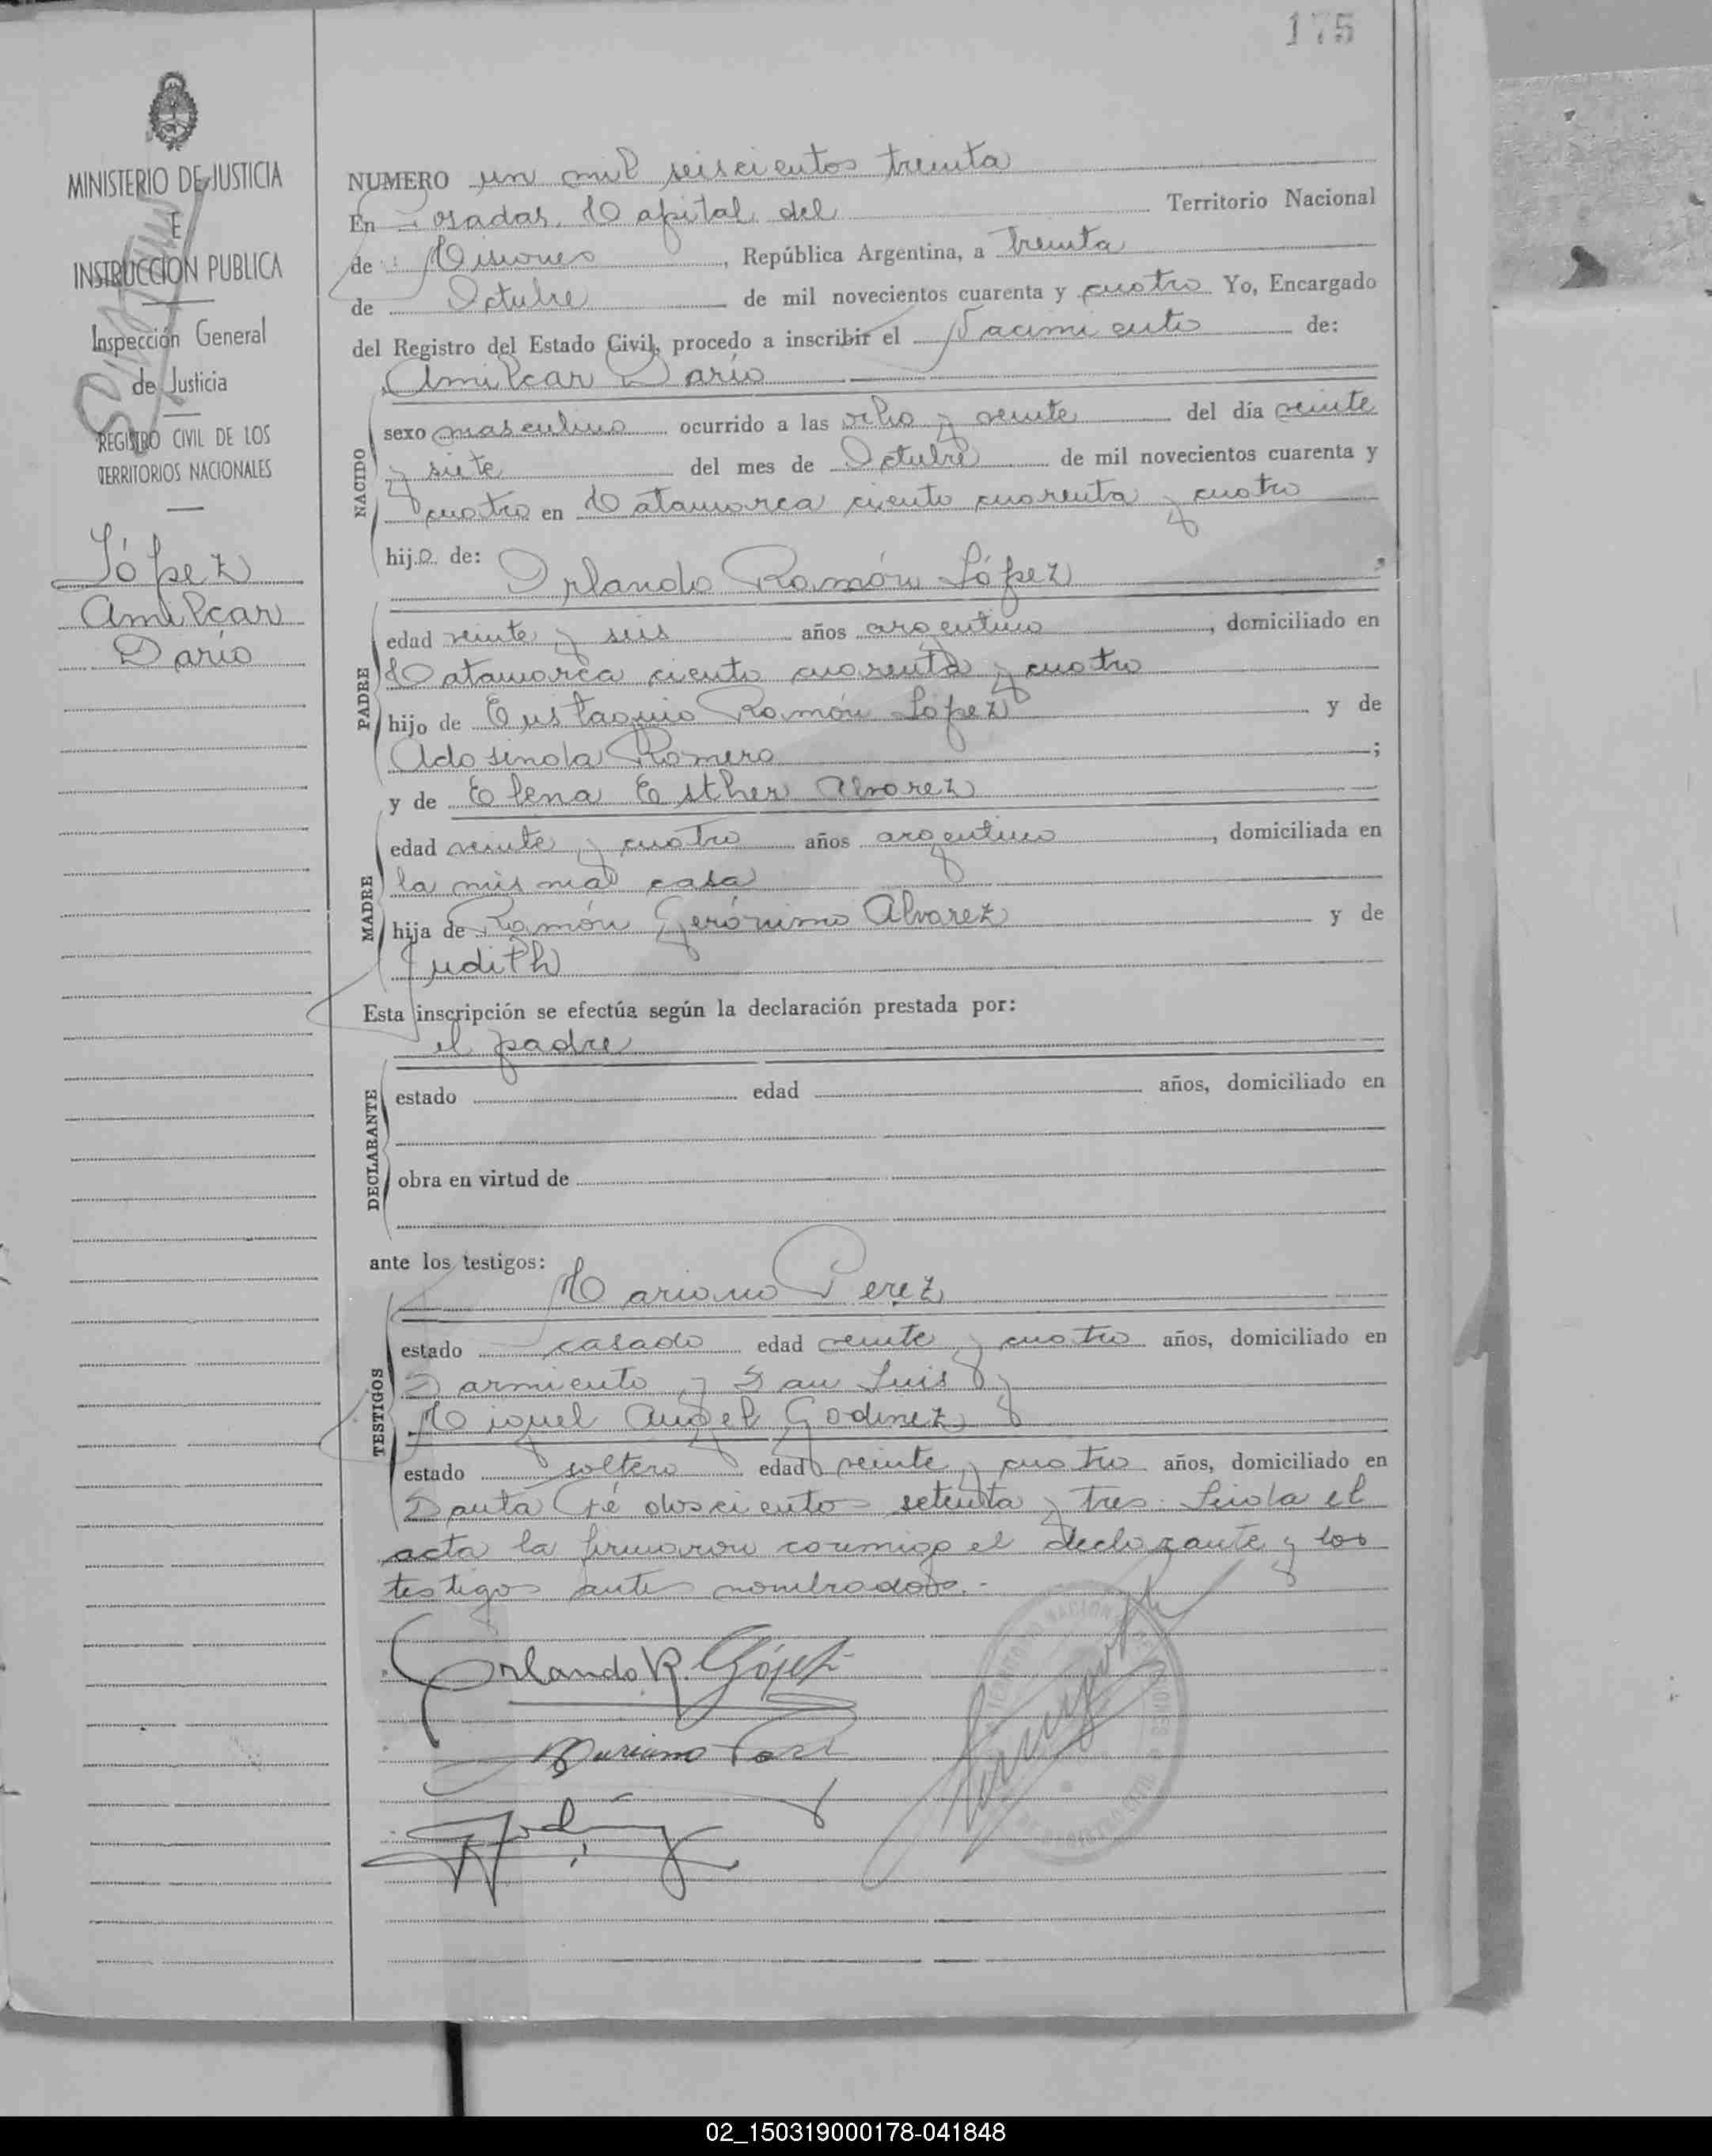 175
MINISTERIO DE JUSTICIA
E
INSTRUCCIÓN PUBLICA
Inspección General
de Justicia
REGISTRO CIVIL DE LOS
TERRITORIOS NACIONALES
López
Amilcar
Darío
NUMERO un mil seiscientos treinta
En Posadas, Capital del Territorio Nacional
de Misiones, República Argentina, a treinta
de Octubre de mil novecientos cuarenta y cuatro Yo, Encargado
del Registro del Estado Civil, procedo a inscribir el Nacimiento de:
Amilcar Darío
NACIDO
sexo masculino ocurrido a las ocho y veinte del día veinte
y siete del mes de Octubre de mil novecientos cuarenta y
cuatro en Catamarca ciento cuarenta y cuatro
hijo de:
Orlando Ramón López,
PADRE
edad veinte y seis años argentino, domiciliado en
Catamarca ciento cuarenta y cuatro
hijo de Eustaquio Ramón López y de
Adosinda Romero;
y de Elena Esther Alvarez
MADRE
edad veinte y cuatro años argentina, domiciliada en
la misma casa
hija de Ramón Gerónimo Alvarez y de
Judith
Esta inscripción se efectúa según la declaración prestada por:
el padre
DECLARANTE
estado edad años, domiciliado en
obra en virtud de
ante los testigos:
Mariano Perez
TESTIGOS
estado casado edad veinte y cuatro años, domiciliado en
Sarmiento y San Luis y
Miguel Angel Godinez
estado soltero edad veinte y cuatro años, domiciliado en
Santa Fé doscientos setenta y tres. Leida el
acta la firmaron conmigo el declarante y los
testigos antes nombrados.-
Orlando R. López
Mariano Perez
02_150319000178-041848